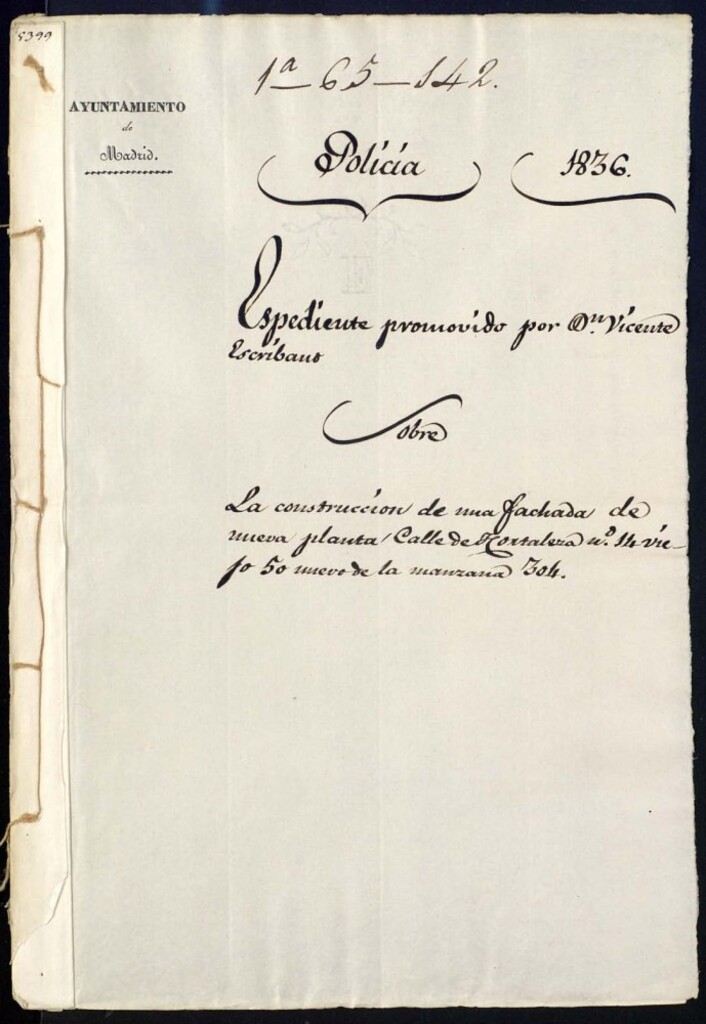 5399
1ª—65—142.
AYUNTAMIENTO
de
Madrid.
Policía
1836.
Espediente promovido por Dn. Vicente
Escribano
Sobre
La construccion de una fachada de
nueva planta Calle de Hortaleza nº. 14 vie-
jo 50 nuevo de la manzana 304.